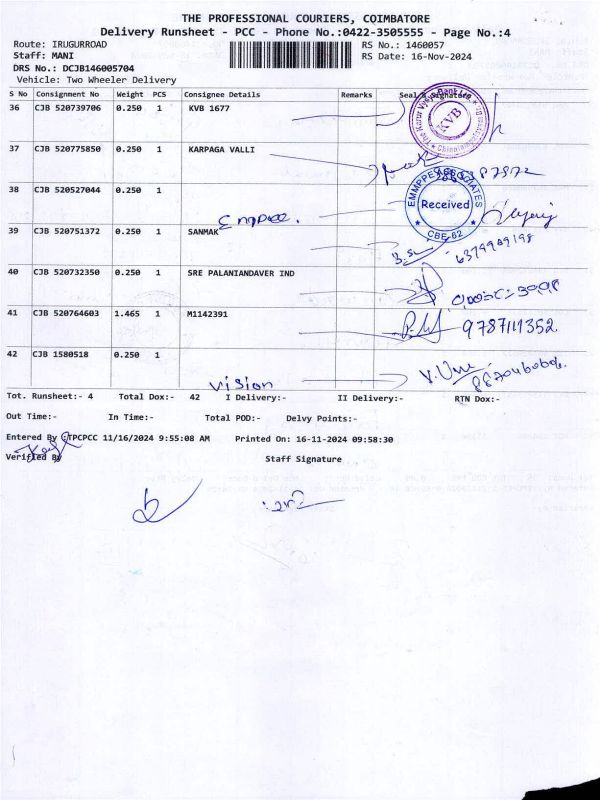 THE PROFESSIONAL COURIERS, COIMBATORE
Delivery Runsheet - PCC - Phone No.:0422-3505555 - Page No.:4
Route: IRUGURROAD RS No.: 1460057
Staff: MANI RS Date: 16-Nov-2024
DRS No.: DCJB146005704
Vehicle: Two Wheeler Delivery
S No Consignment No Weight PCS Consignee Details Remarks Seal & Signature
36 CJB 520739706 0.250 1 KVB 1677
KVB
37 CJB 520775850 0.250 1 KARPAGA VALLI
38 CJB 520527044 0.250 1
EMMPPE ASSOCIATES
Received
CBE-62
39 CJB 520751372 0.250 1 SANMAK
6379909198
40 CJB 520732350 0.250 1 SRE PALANIANDAVER IND
41 CJB 520764603 1.465 1 M1142391
9787111352
42 CJB 1580518 0.250 1
vision
Tot. Runsheet:- 4 Total Dox:- 42 I Delivery:- II Delivery:- RTN Dox:-
Out Time:- In Time:- Total POD:- Delvy Points:-
Entered By :TPCPCC 11/16/2024 9:55:08 AM Printed On: 16-11-2024 09:58:30
Verified By Staff Signature